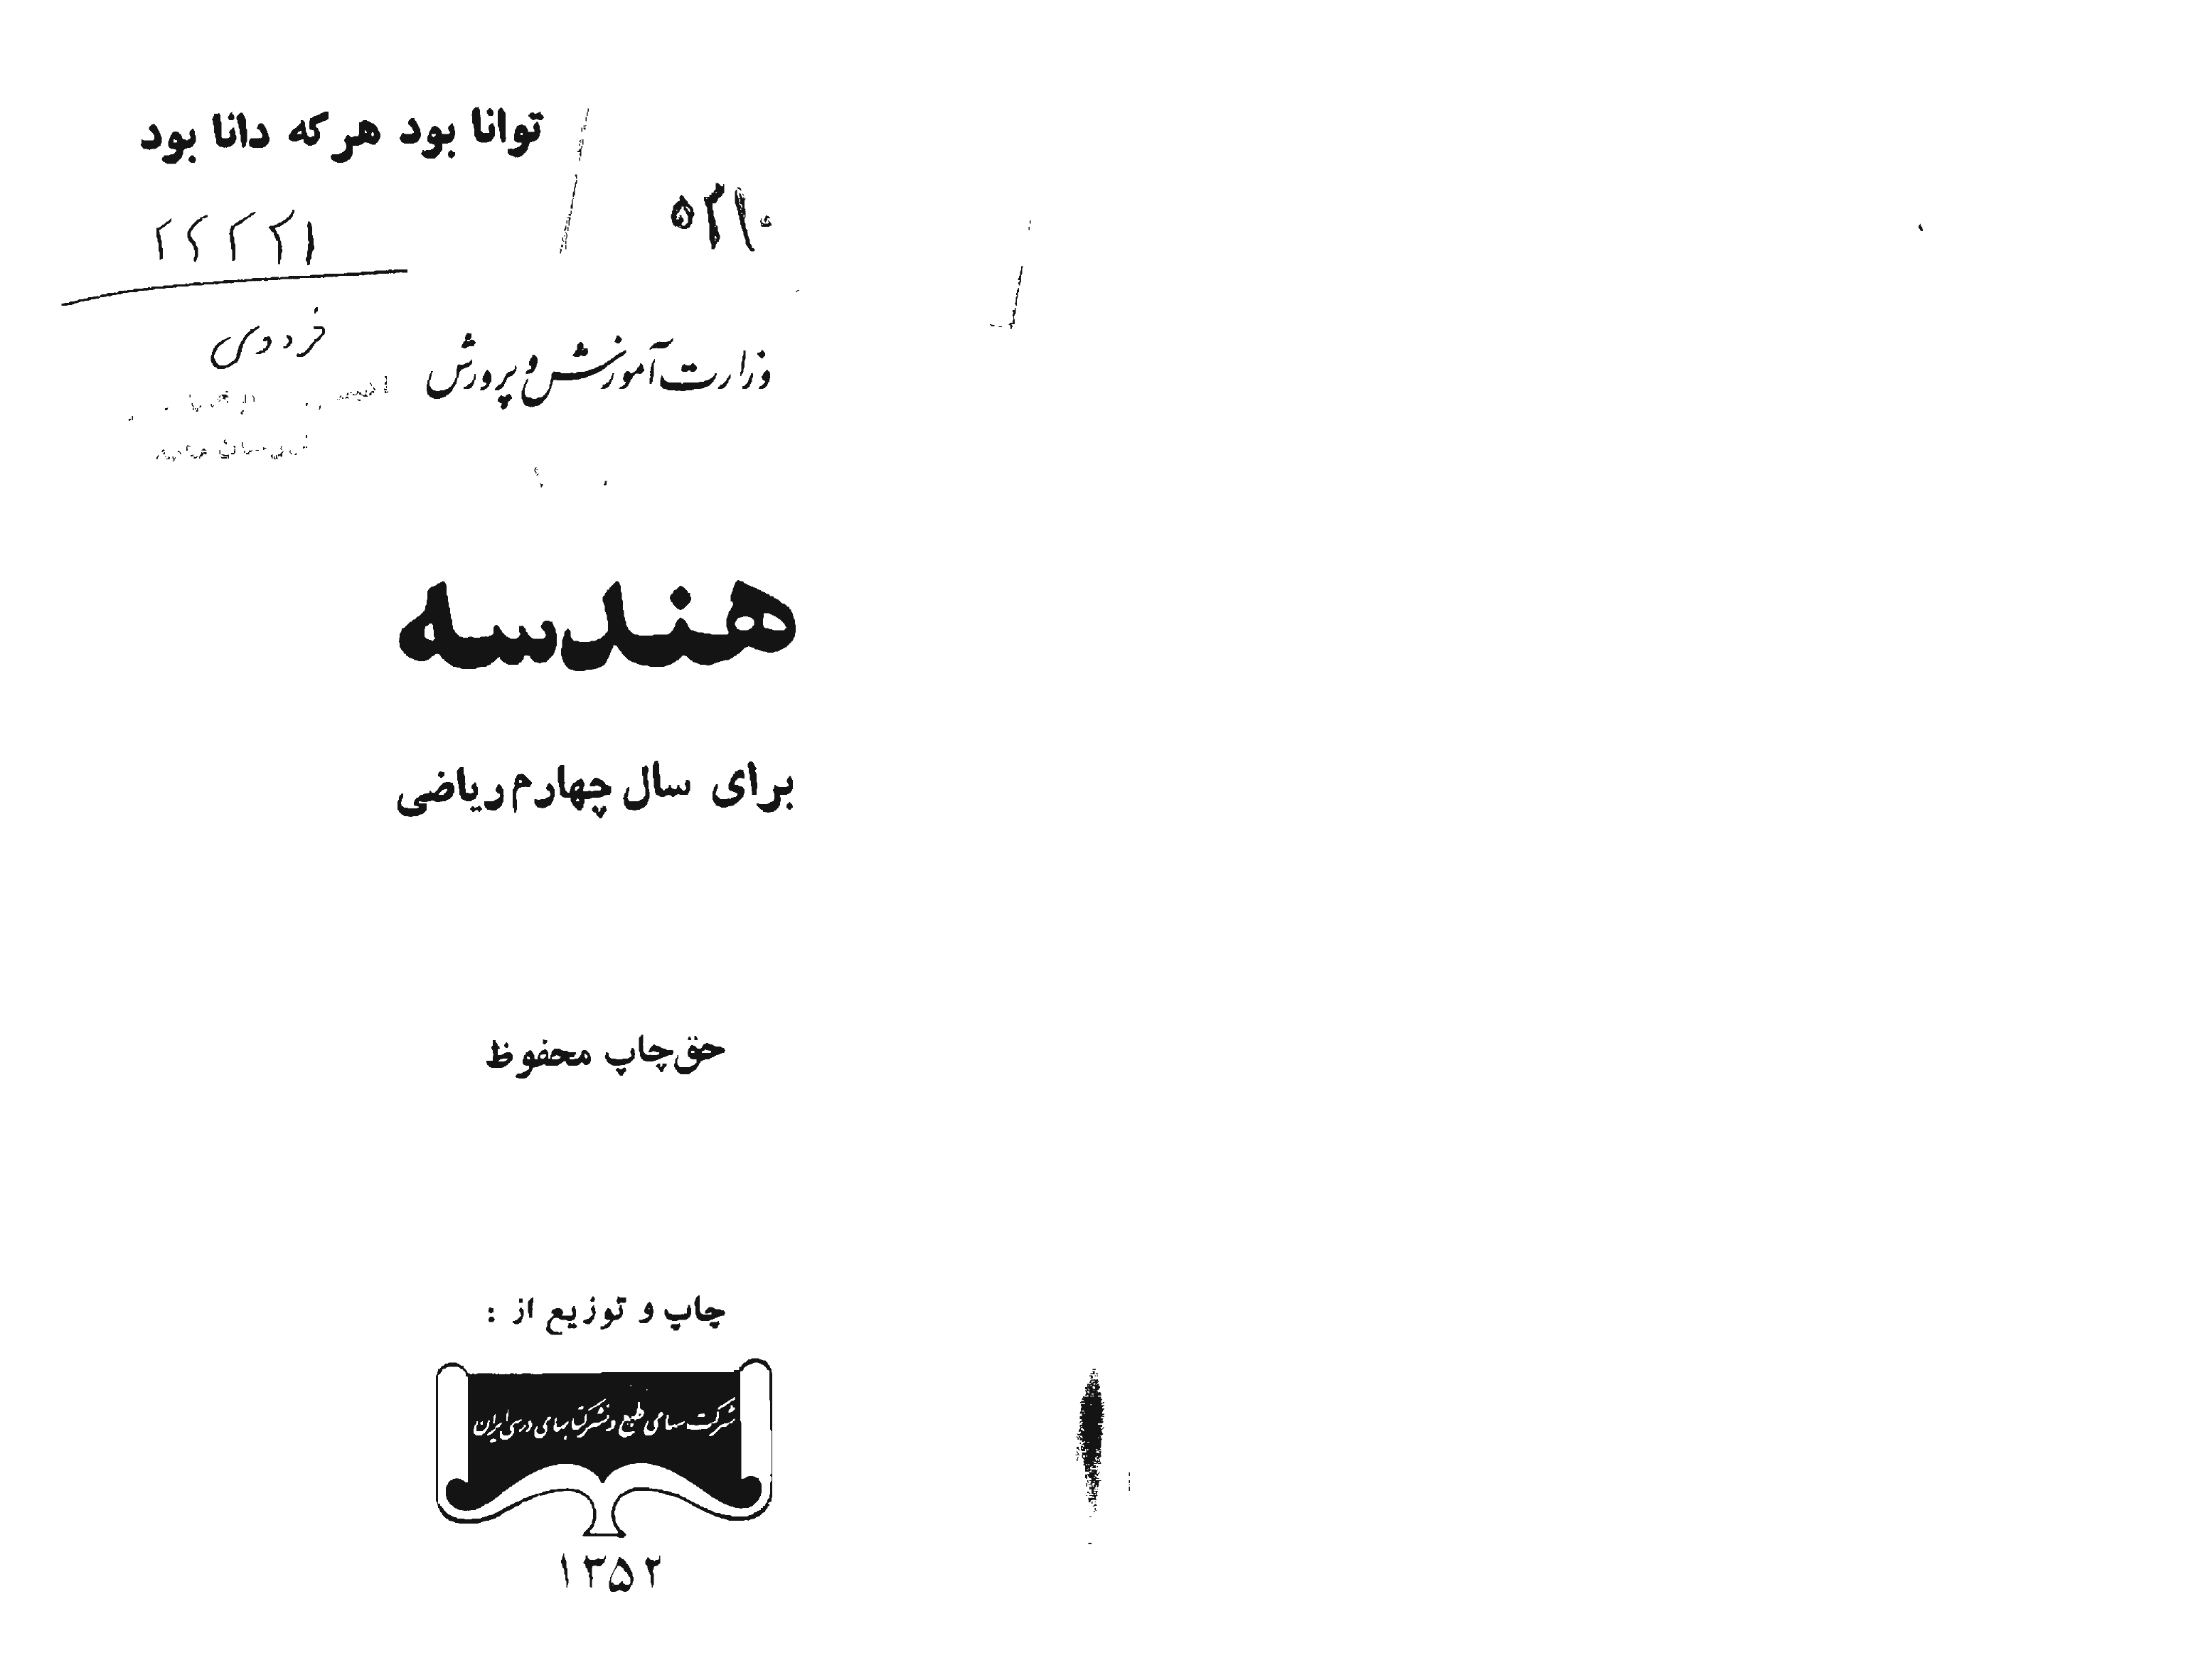 توانا بود هر که دانا بود
وزارت آموزش و پرورش
هندسه
برای سال چهارم ریاضی
حق چاپ محفوظ
چاپ و توزیع از :
شرکت سهامی طبع و نشر کتابهای درسی ایران
۱۳۵۲